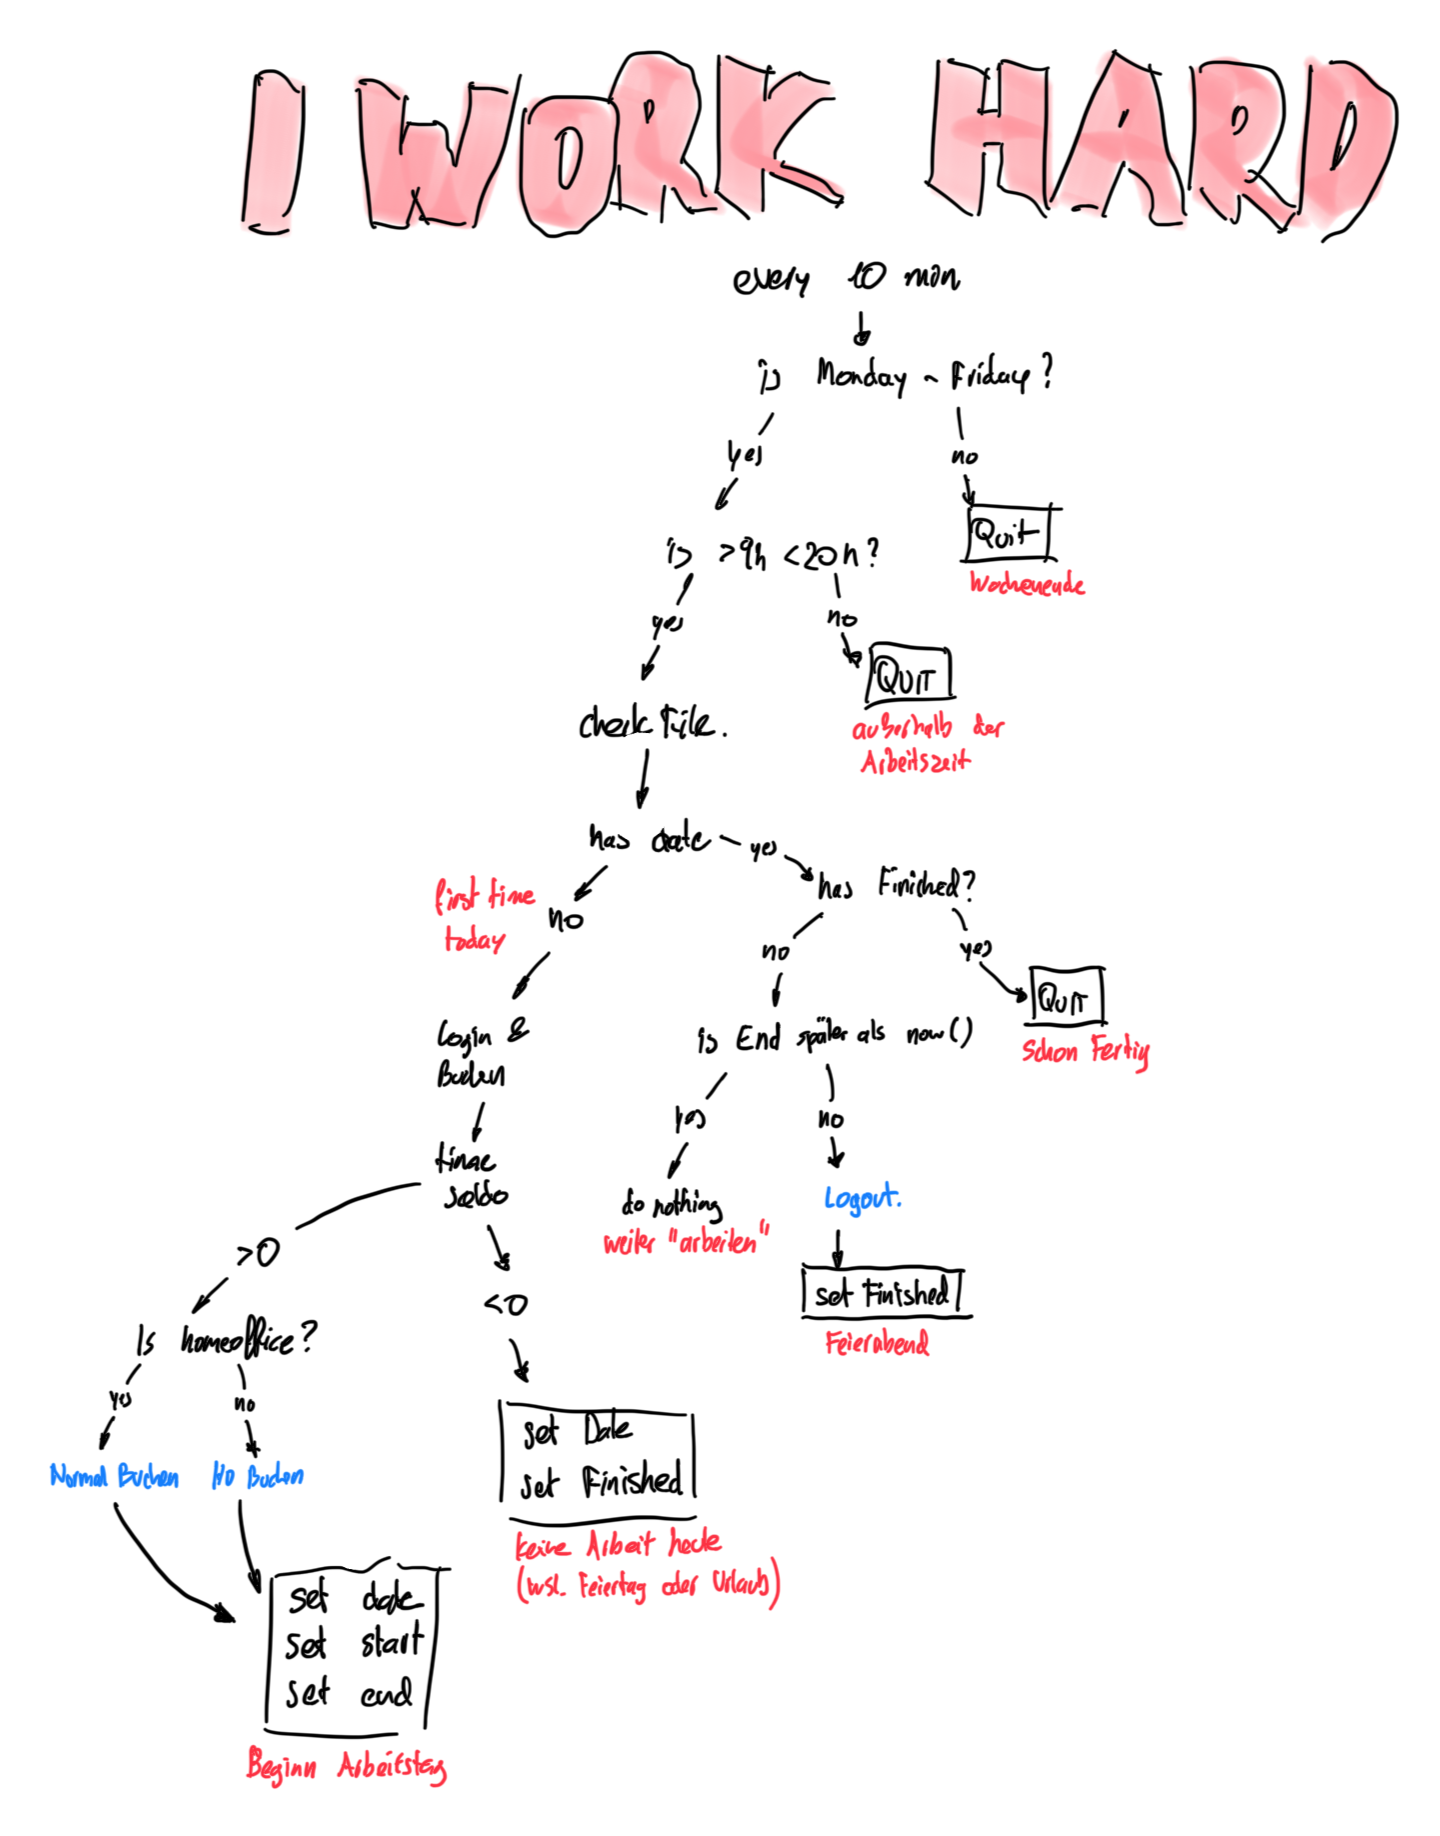 I WORK HARD
every 10 min
is Monday - Friday?
yes
no
Quit
Wochenende
is >9h <20h?
yes
no
QUIT
außerhalb der
Arbeitszeit
check File.
has date
yes
has Finished?
first time
today
no
no
yes
QUIT
schon Fertig
Login &
Buchen
is End später als now()
yes
no
time
saldo
do nothing
weiter "arbeiten"
Logout.
set Finished
Feierabend
>0
<0
Is homeoffice?
yes
no
Normal Buchen
HO Buchen
set Date
set Finished
keine Arbeit heute
(wsl. Feiertag oder Urlaub)
set date
set start
set end
Beginn Arbeitstag